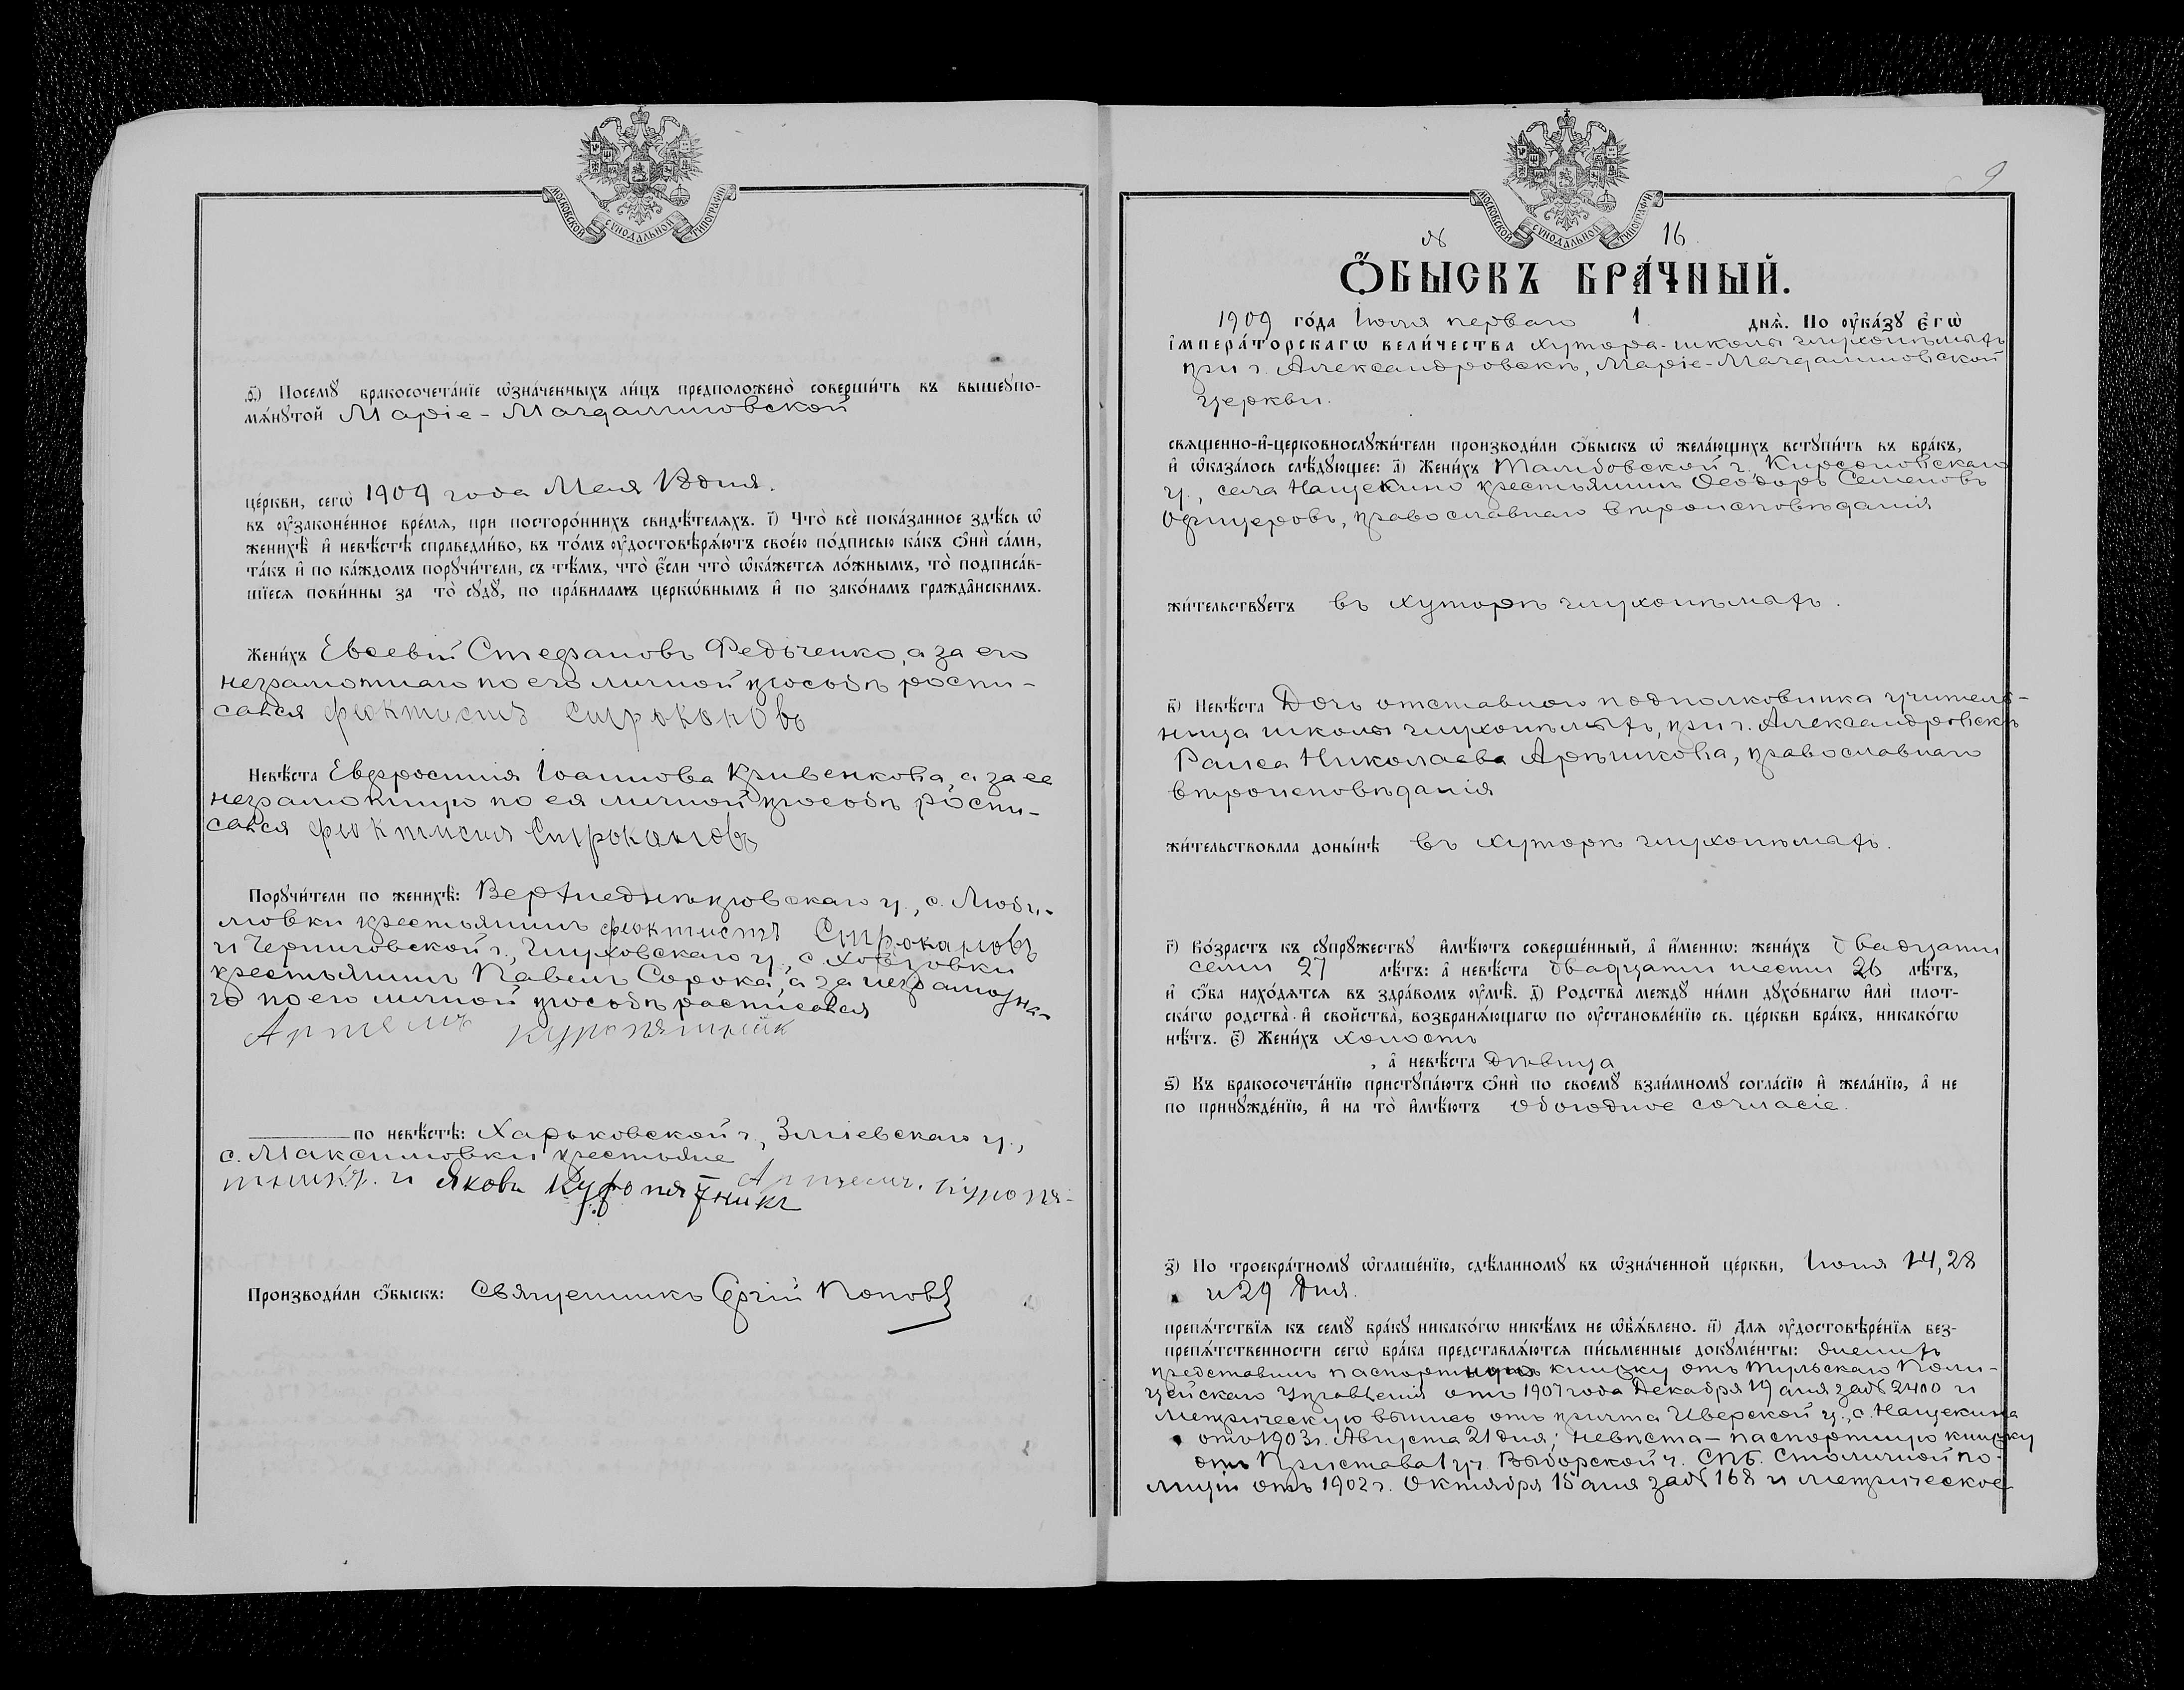 МОСКОВСКОЙ СѴНОДАЛЬНОЙ ТИПОГРАФІИ
ѳ҃) Посемꙋ бракосочета́нїе ѡ҆зна́ченныхъ ли́цъ предположено̀ соверши́ть въ вышеꙋпо-
мѧ́нꙋтой Маріе-Магдалиновской
це́ркви, сегѡ̀ 1909 года Мая 18 дня.
въ ᲂу҆законе́нное вре́мѧ, при посторо́ннихъ свидѣ́телѧхъ. і҃) Что̀ всѐ пока́занное здѣ́сь ѡ҆
женихѣ̀ и҆ невѣ́стѣ справедли́во, въ то́мъ ᲂу҆достовѣрѧ́ютъ свое́ю по́дписью ка́къ ѻ҆нѝ са́ми,
та́къ и҆ по ка́ждомъ порꙋчи́тели, съ тѣ́мъ, что̀ є҆́сли что̀ ѡ҆ка́жетсѧ ло́жнымъ, то̀ подписа́в-
шїесѧ пови́нны за то̀ сꙋдꙋ̀, по пра́виламъ церкѡ́внымъ и҆ по зако́намъ гражда̑нскимъ.
Жени́хъ Евсевій Стефановъ Федьченко, а за его
неграмотнаго по его личной просьбѣ роспи-
сался Феоктистъ Сыроконовъ
Невѣ́ста Евфросинія Іоаннова Кривенкова, а за ее
неграмотную по ея личной просьбѣ роспи-
сался Феоктистъ
Порꙋчи́тели по женихѣ̀: Верхнеднѣпровскаго у., с. Люби-
мовки крестьянинъ Феоктистъ
и Черниговской г., Глуховскаго у., с.
крестьянинъ Павелъ Сорока, а за неграмотна-
го по его личной просьбѣ расписался
Артемъ Куропятникъ
по невѣ́стѣ: Харьковской г., Зміевскаго у.,
с. Максимовки крестьяне
Артемъ Куропя-
тникъ и Яковъ Куропятникъ
Производи́ли ѻ҆́быскъ: Священникъ Сергій Поповъ
9
МОСКОВСКОЙ СѴНОДАЛЬНОЙ ТИПОГРАФІИ
№ 16
Ѻ҆́БЫСКЪ БРА́ЧНЫЙ.
1909 го́да Іюля перваго 1 днѧ̀. По ᲂу҆ка́зꙋ є҆гѡ̀
і҆мпера́торскагѡ вели́чества хутора-школы глухонѣмыхъ
при г. Александровскѣ, Маріе-Магдалиновской
церкви.
свѧщенно-и҆-церковнослꙋжи́тели производи́ли ѻ҆́быскъ ѡ҆ жела́ющихъ встꙋпи́ть въ бра́къ,
и҆ ѡ҆каза́лось слѣ́дꙋющее: а҃) Жени́хъ Тамбовской г. Кирсановскаго
у., села Нащекино крестьянинъ Феодоръ Семеновъ
Офицеровъ, православнаго вѣроисповѣданія
жи́тельствꙋетъ въ хуторѣ глухонѣмыхъ.
в҃) Невѣ́ста Дочь отставного подполковника учитель-
ница школы глухонѣмыхъ, при г. Александровскѣ
Раиса Николаева Арѣшкова, православнаго
вѣроисповѣданія
жи́тельствовала доны́нѣ въ хуторѣ глухонѣмыхъ.
г҃) Во́зрастъ къ сꙋпрꙋ́жествꙋ и҆мѣ́ютъ соверше́нный, а҆ и҆́меннѡ: жени́хъ двадцати
семи 27 лѣ́тъ: а҆ невѣ́ста двадцати шести 26 лѣ́тъ,
и҆ ѻ҆́ба нахо́дѧтсѧ въ здра́вомъ ᲂу҆мѣ̀. д҃) Родства̀ междꙋ ни́ми дꙋхо́внагѡ и҆лѝ плот-
ска́гѡ родства̀ и҆ свойства̀, возбранѧ́ющагѡ по ᲂу҆становле́нїю св. це́ркви бра́къ, никако́гѡ
нѣ́тъ. є҃) Жени́хъ холостъ
, а҆ невѣ́ста Дѣвица
ѕ҃) Къ бракосочета́нїю пристꙋпа́ютъ ѻ҆нѝ по своемꙋ̀ взаи́мномꙋ согла́сїю и҆ жела́нїю, а҆ не
по принꙋжде́нїю, и҆ на то̀ и҆мѣ́ютъ обоюдное согласіе.
з҃) По троекра́тномꙋ ѡ҆глаше́нїю, сдѣ́ланномꙋ въ ѡ҆зна́ченной це́ркви, Іюня 14, 28
и 29 Дня.
препѧ́тствїѧ къ семꙋ̀ бра́кꙋ никако́гѡ никѣ́мъ не ѡ҆б̾ѧ́влено. и҃) Длѧ ᲂу҆достовѣре́нїѧ без-
препѧ́тственности сегѡ̀ бра́ка представлѧ́ютсѧ пи́сьменные докꙋме́нты: женихъ
представилъ паспортную книжку отъ Тульскаго Поли-
цейскаго Управленія отъ 1907 года Декабря 19 дня за № 2400 и
метрическую выпись отъ причта Иверской ц., с. Нащекина
отъ 1903 г. Августа 21 дня; невѣста – паспортную книжку
отъ Пристава 1 уч. Выборской ч. СПБ. Столичной по-
лиціи отъ 1902 г. Октября 15 дня за № 168 и метрическое